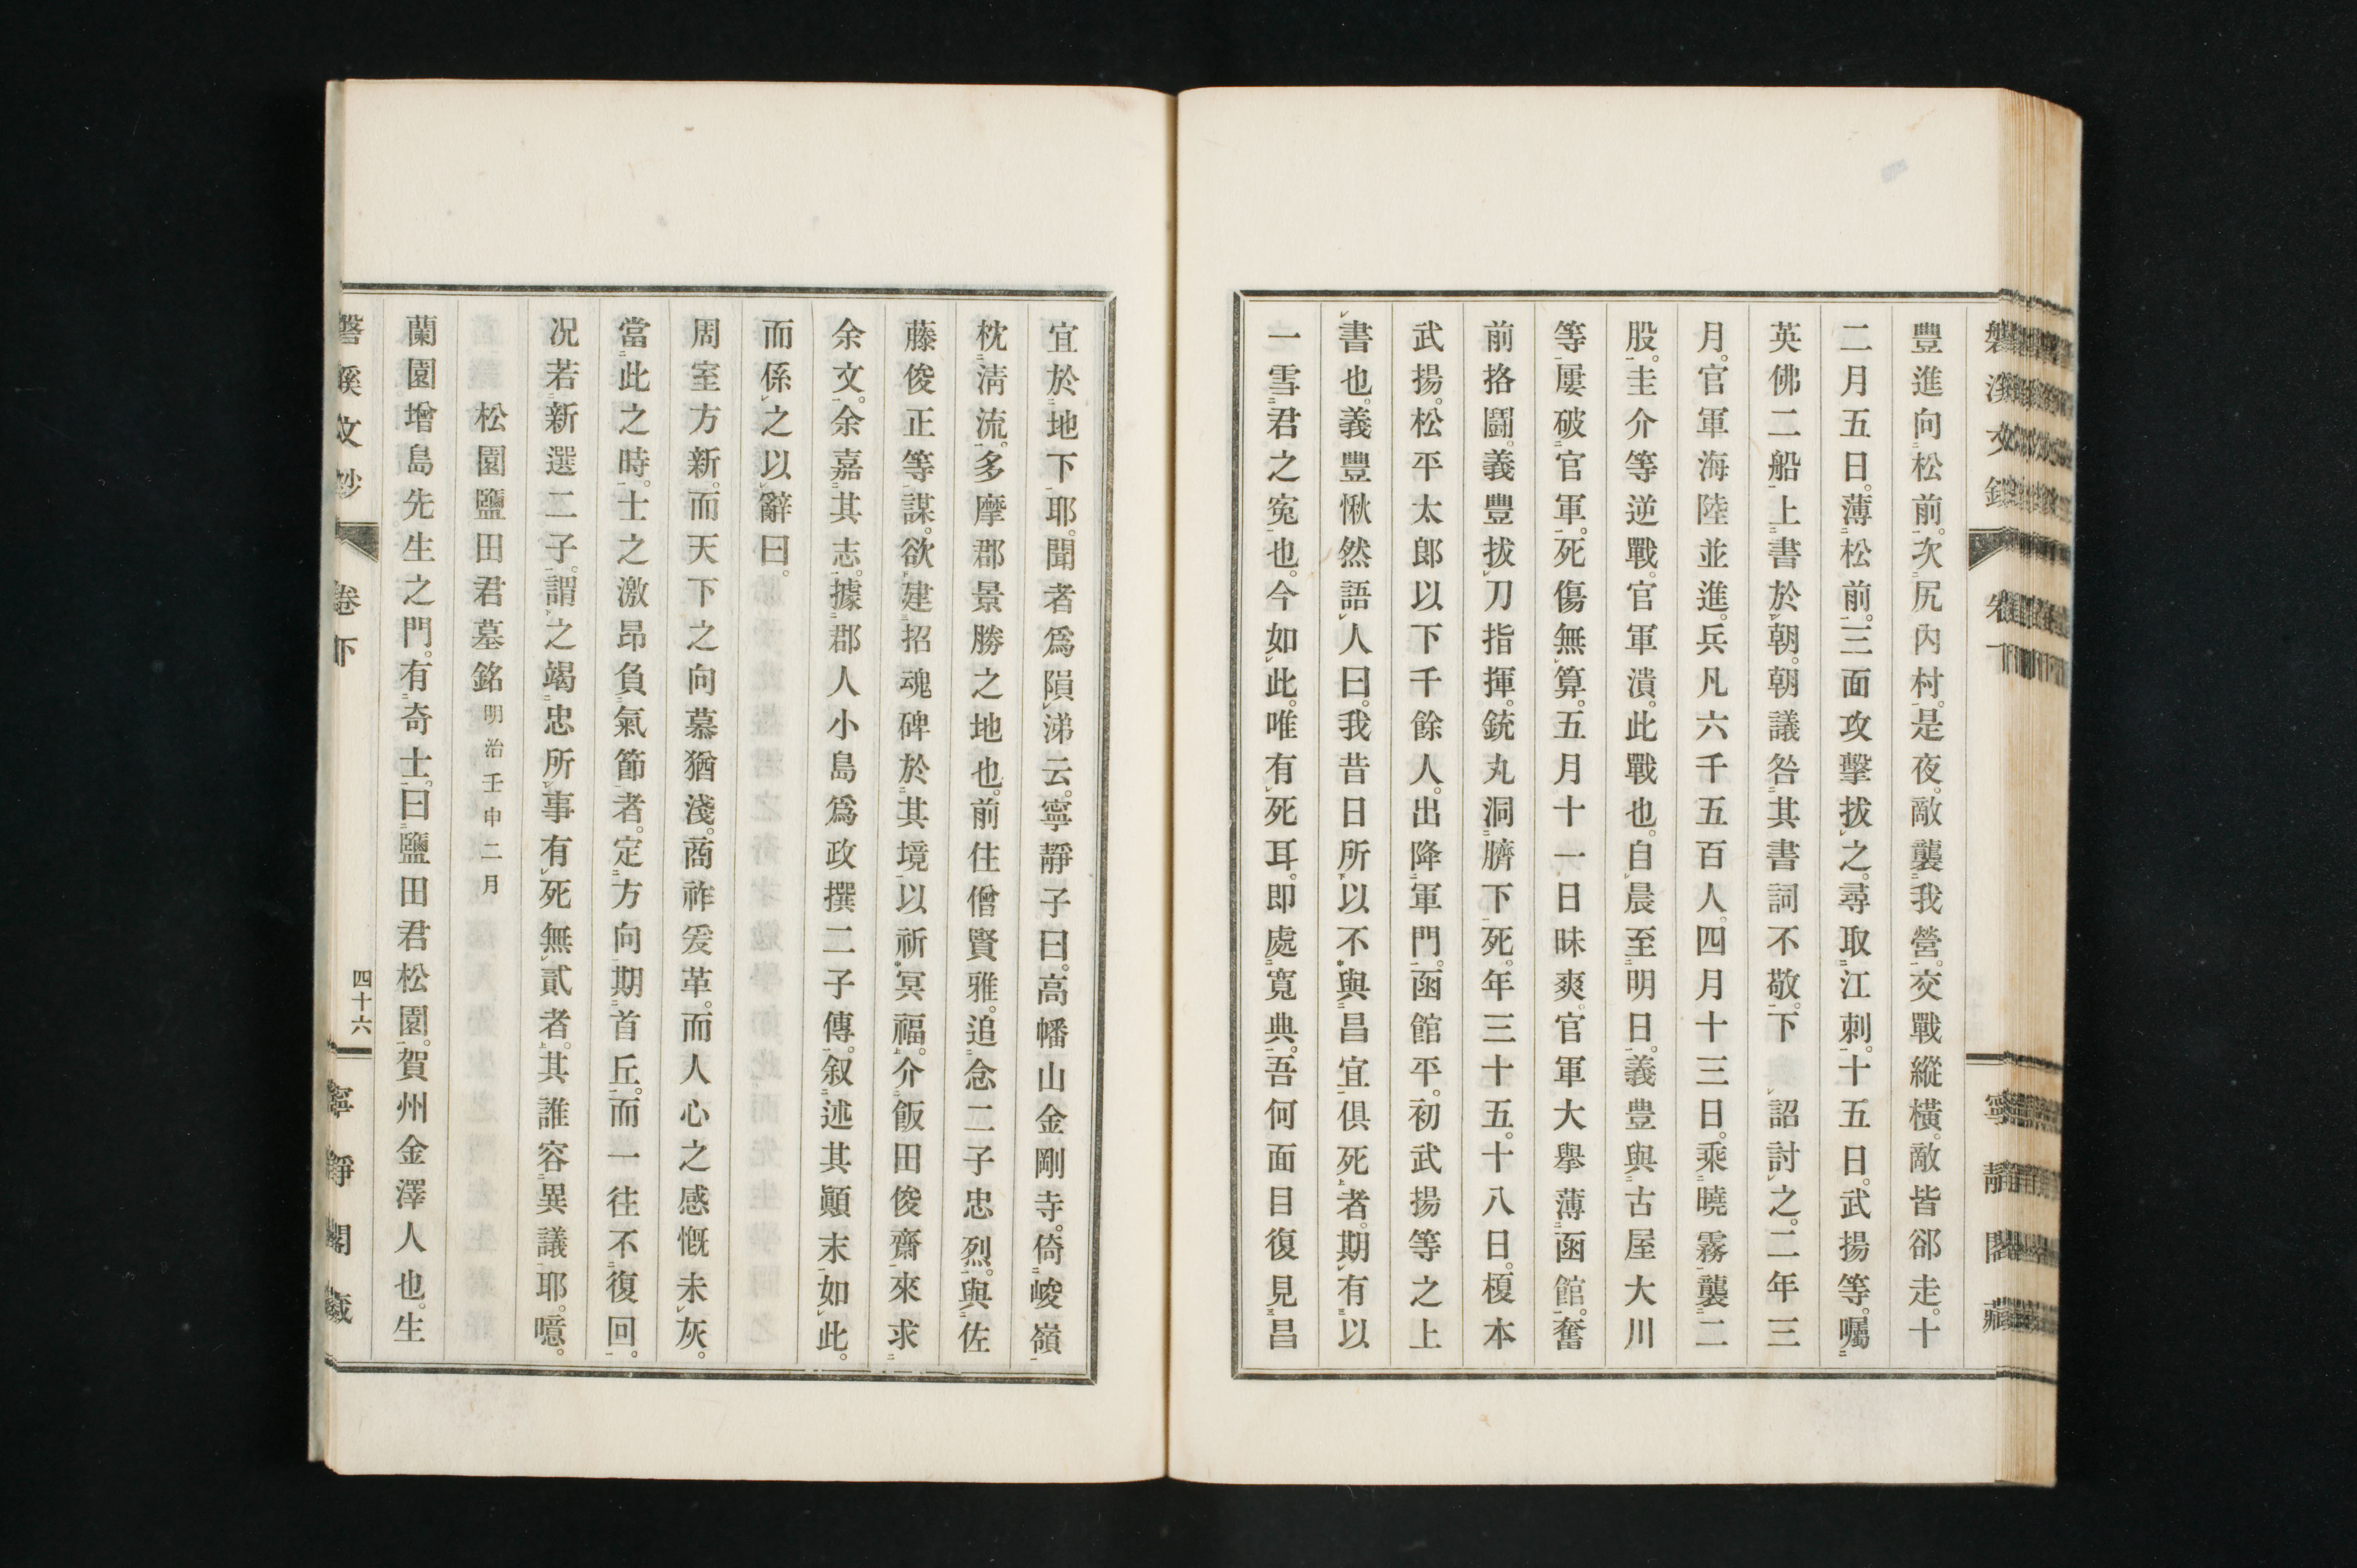 豐進向松前。次尻內村。是夜。敵襲我營。交戰縱橫。敵皆郤走。十
二月五日。薄松前。三面攻擊拔之。尋取江刺。十五日。武揚等。囑
英佛二船上書於朝。朝議咎其書詞不敬。下 詔討之。二年三
月。官軍海陸並進。兵凡六千五百人。四月十三日。乘曉霧襲二
股。圭介等逆戰。官軍潰。此戰也。自晨至明日。義豊與古屋大川
等屢破官軍。死傷無算。五月十一日昧爽。官軍大擧薄函館。奮
前挌鬪。義豐拔刀指揮。銃丸洞臍下死。年三十五。十八日。榎本
武揚。松平太郎以下千餘人。出降軍門。函館平。初武揚等之上
書也。義豐愀然語人曰。我昔日所以不與昌宜俱死者。期有以
一雪君之寃也。今如此。唯有死耳。即處寬典。吾何面目復見昌
宜於地下耶。聞者爲隕涕云。寧靜子曰。高幡山金剛寺。倚峻嶺
枕淸流。多摩郡景勝之地也。前住僧賢雅。追念二子忠烈。與佐
藤俊正等謀。欲建招魂碑於其境以祈冥福。介飯田俊齋來求
余文。余嘉其志。據郡人小島爲政撰二子傳。叙述其顚末如此。
而係之以辭曰。
周室方新。而天下之向慕猶淺。商祚爰革。而人心之感慨未灰。
當此之時。士之激昂負氣節者。定方向期首丘。而一往不復回。
況若新選二子。謂之竭忠所事有死無貳者。其誰容異議耶。噫。
松園鹽田君墓銘 明治壬申二月
蘭園增島先生之門。有奇士。曰鹽田君松園。賀州金澤人也。生
卷下
四十六